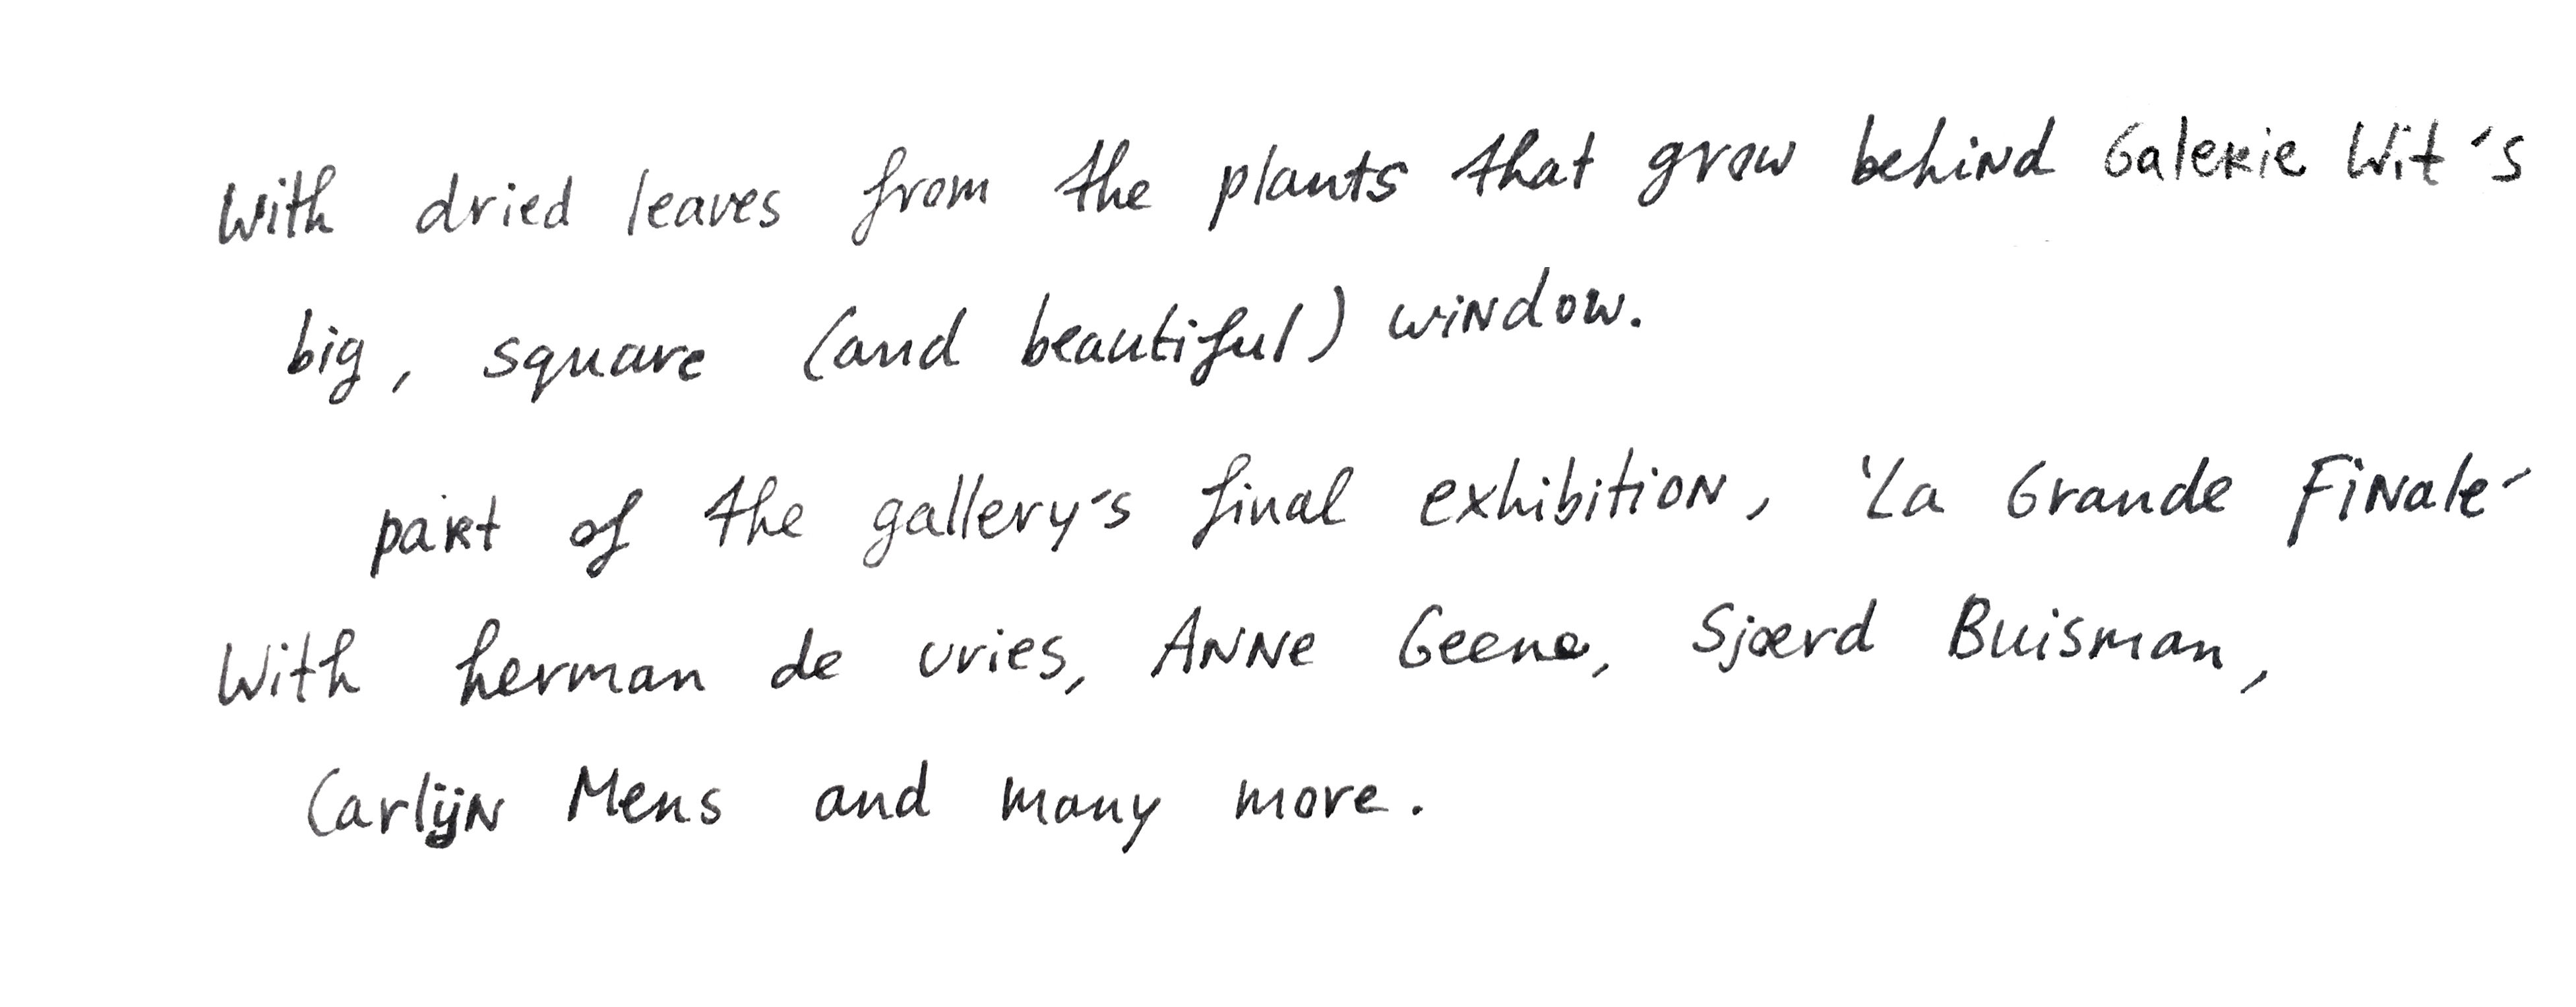 With dried leaves from the plants that grow behind Galerie Wit's
big, square (and beautiful) window.
part of the gallery's final exhibition, 'La Grande Finale'
With herman de vries, Anne Geene, Sjoerd Buisman,
Carlijn Mens and many more.